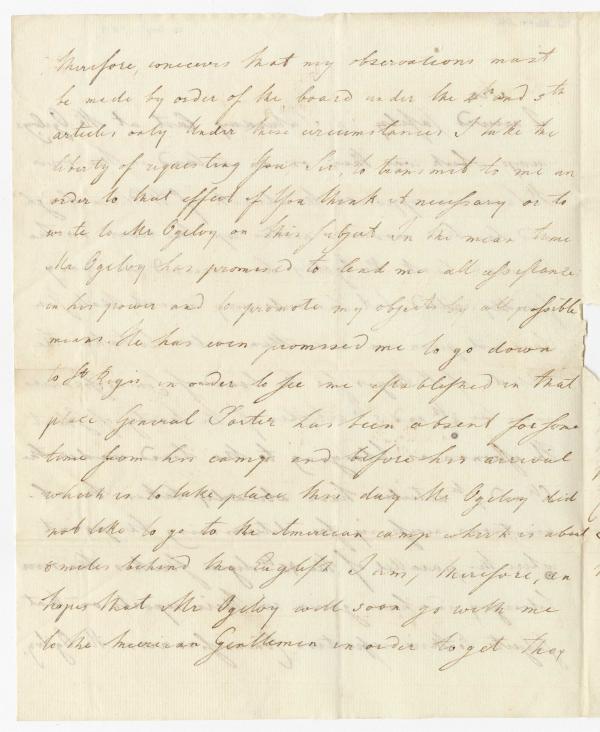 therefore, conceives that my observations must
be made by order of the board under the 4th and 5th
articles only Under these circumstances I take the
liberty of requesting You Sir, to transmit to me an
order to that effect if You think it necessary or to
write to Mr Ogilvy on this subject in the mean time
Mr Ogilvy has promised to lend me all assistance
in his power and to promote my object by all possible
means. He has even promised me to go down
to St Regis in order to see me established in that
place General Porter has been absent for some
time from his camp and before his arrival
which is to take place this day Mr Ogilvy did
not like to go to the American camp which is about
8 miles behind the English I am, therefore, in
hopes that Mr Ogilvy will soon go with me
to the American Gentlemen in order to get